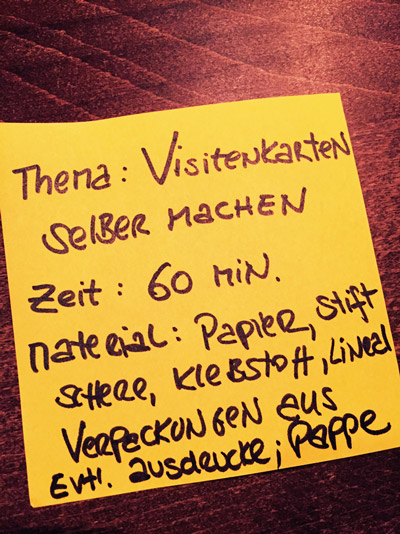 Thema: Visitenkarten
selber machen
Zeit: 60 min.
Material: Papier, Stift
Schere, Klebstoff, Lineal
Verpackungen aus
Evtl. Ausdrucke; Pappe